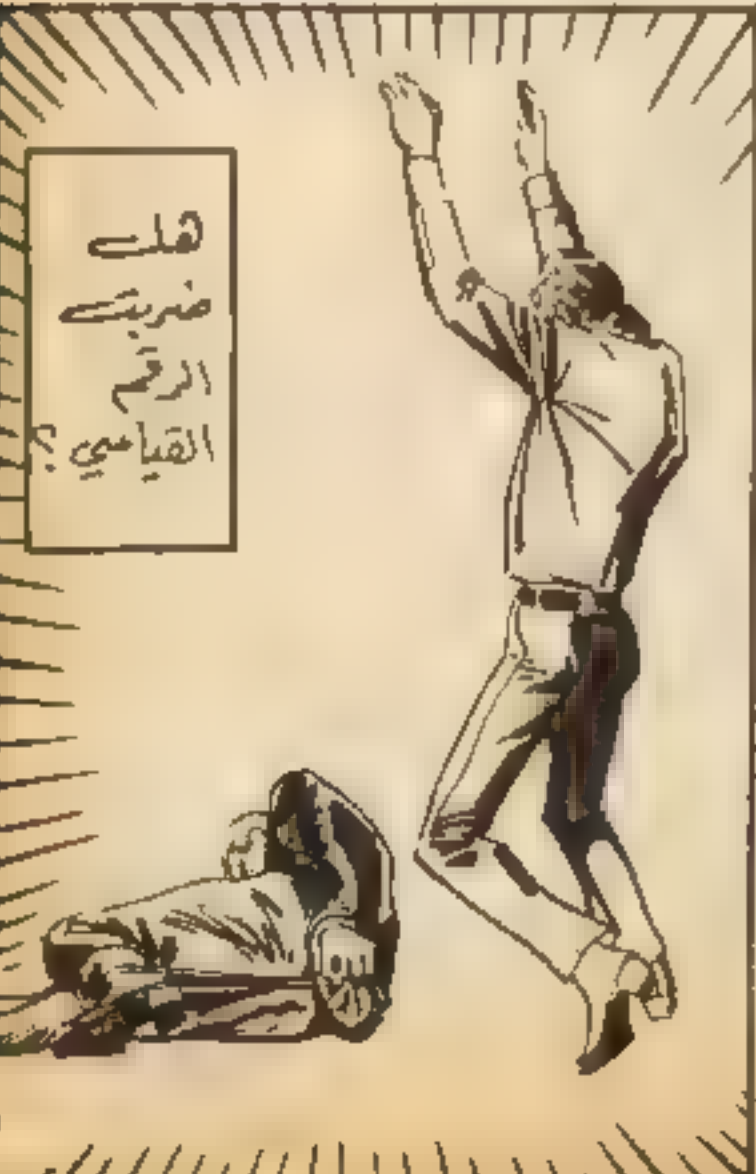 هل
ضربت
الرقم
القياسي؟